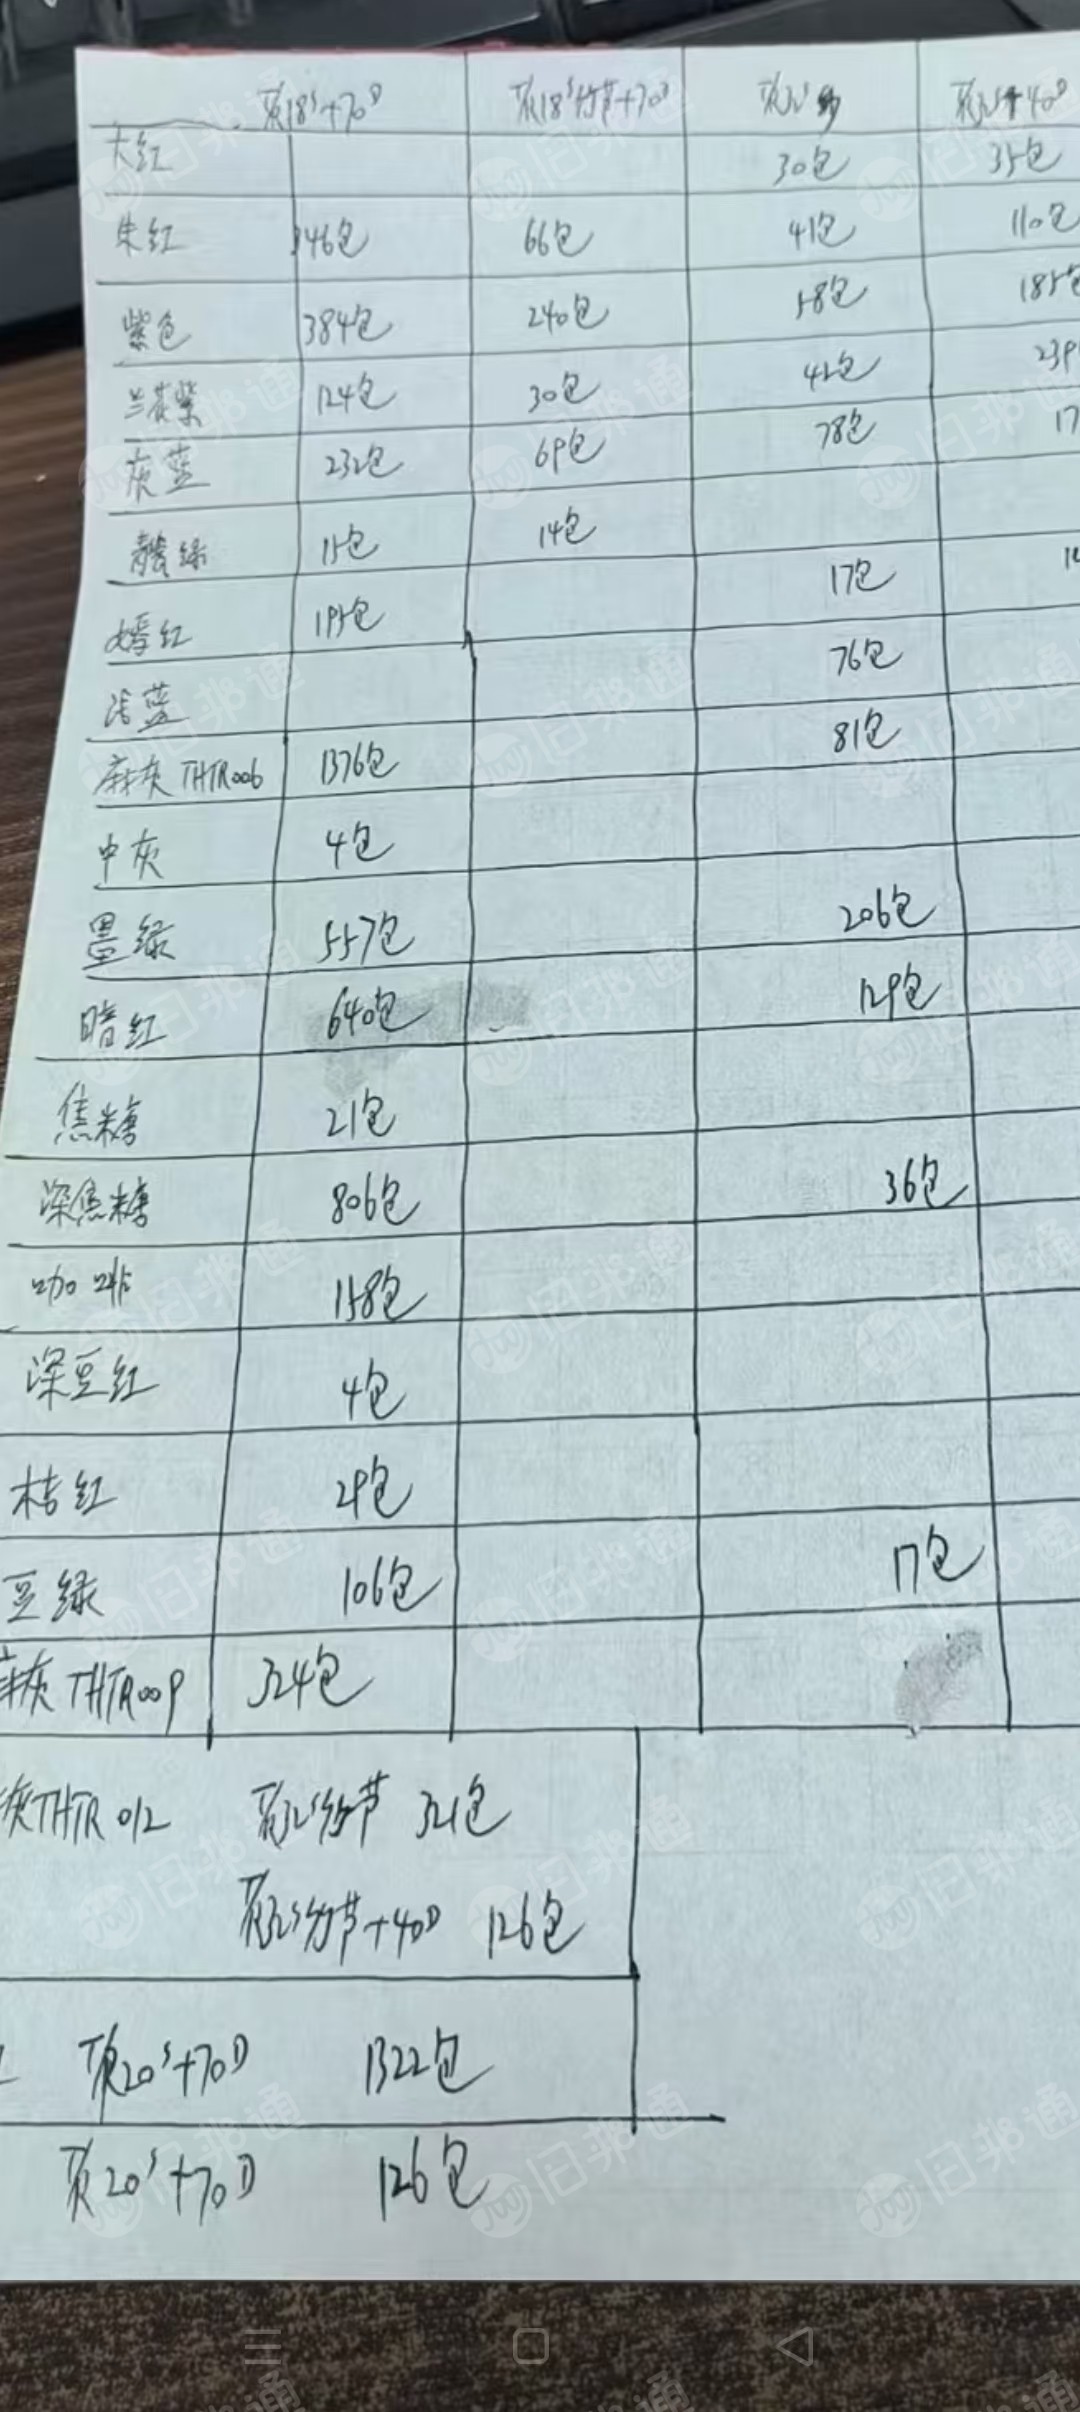 18ˢ+70ᴰ 18ˢ竹节+70ᴰ +40ᴰ
大红 30包 35包
朱红 66包 41包 110包
紫色 384包 240包 58包 185包
兰花紫 124包 30包 42包 239
灰蓝 232包 69包 78包 17
绿 15包 14包
嫣红 195包 17包 14
蓝 76包
麻灰 THTR006 1376包 81包
中灰 4包
墨绿 557包 206包
暗红 640包 129包
焦糖 21包
深焦糖 806包 36包
咖啡 158包
深豆红 4包
桔红 29包
豆绿 106包 17包
麻灰 THTR009 324包
灰THTR012 竹节 321包
竹节+40D 126包
20ˢ+70D 1322包
20ˢ+70D 126包
旧邦通